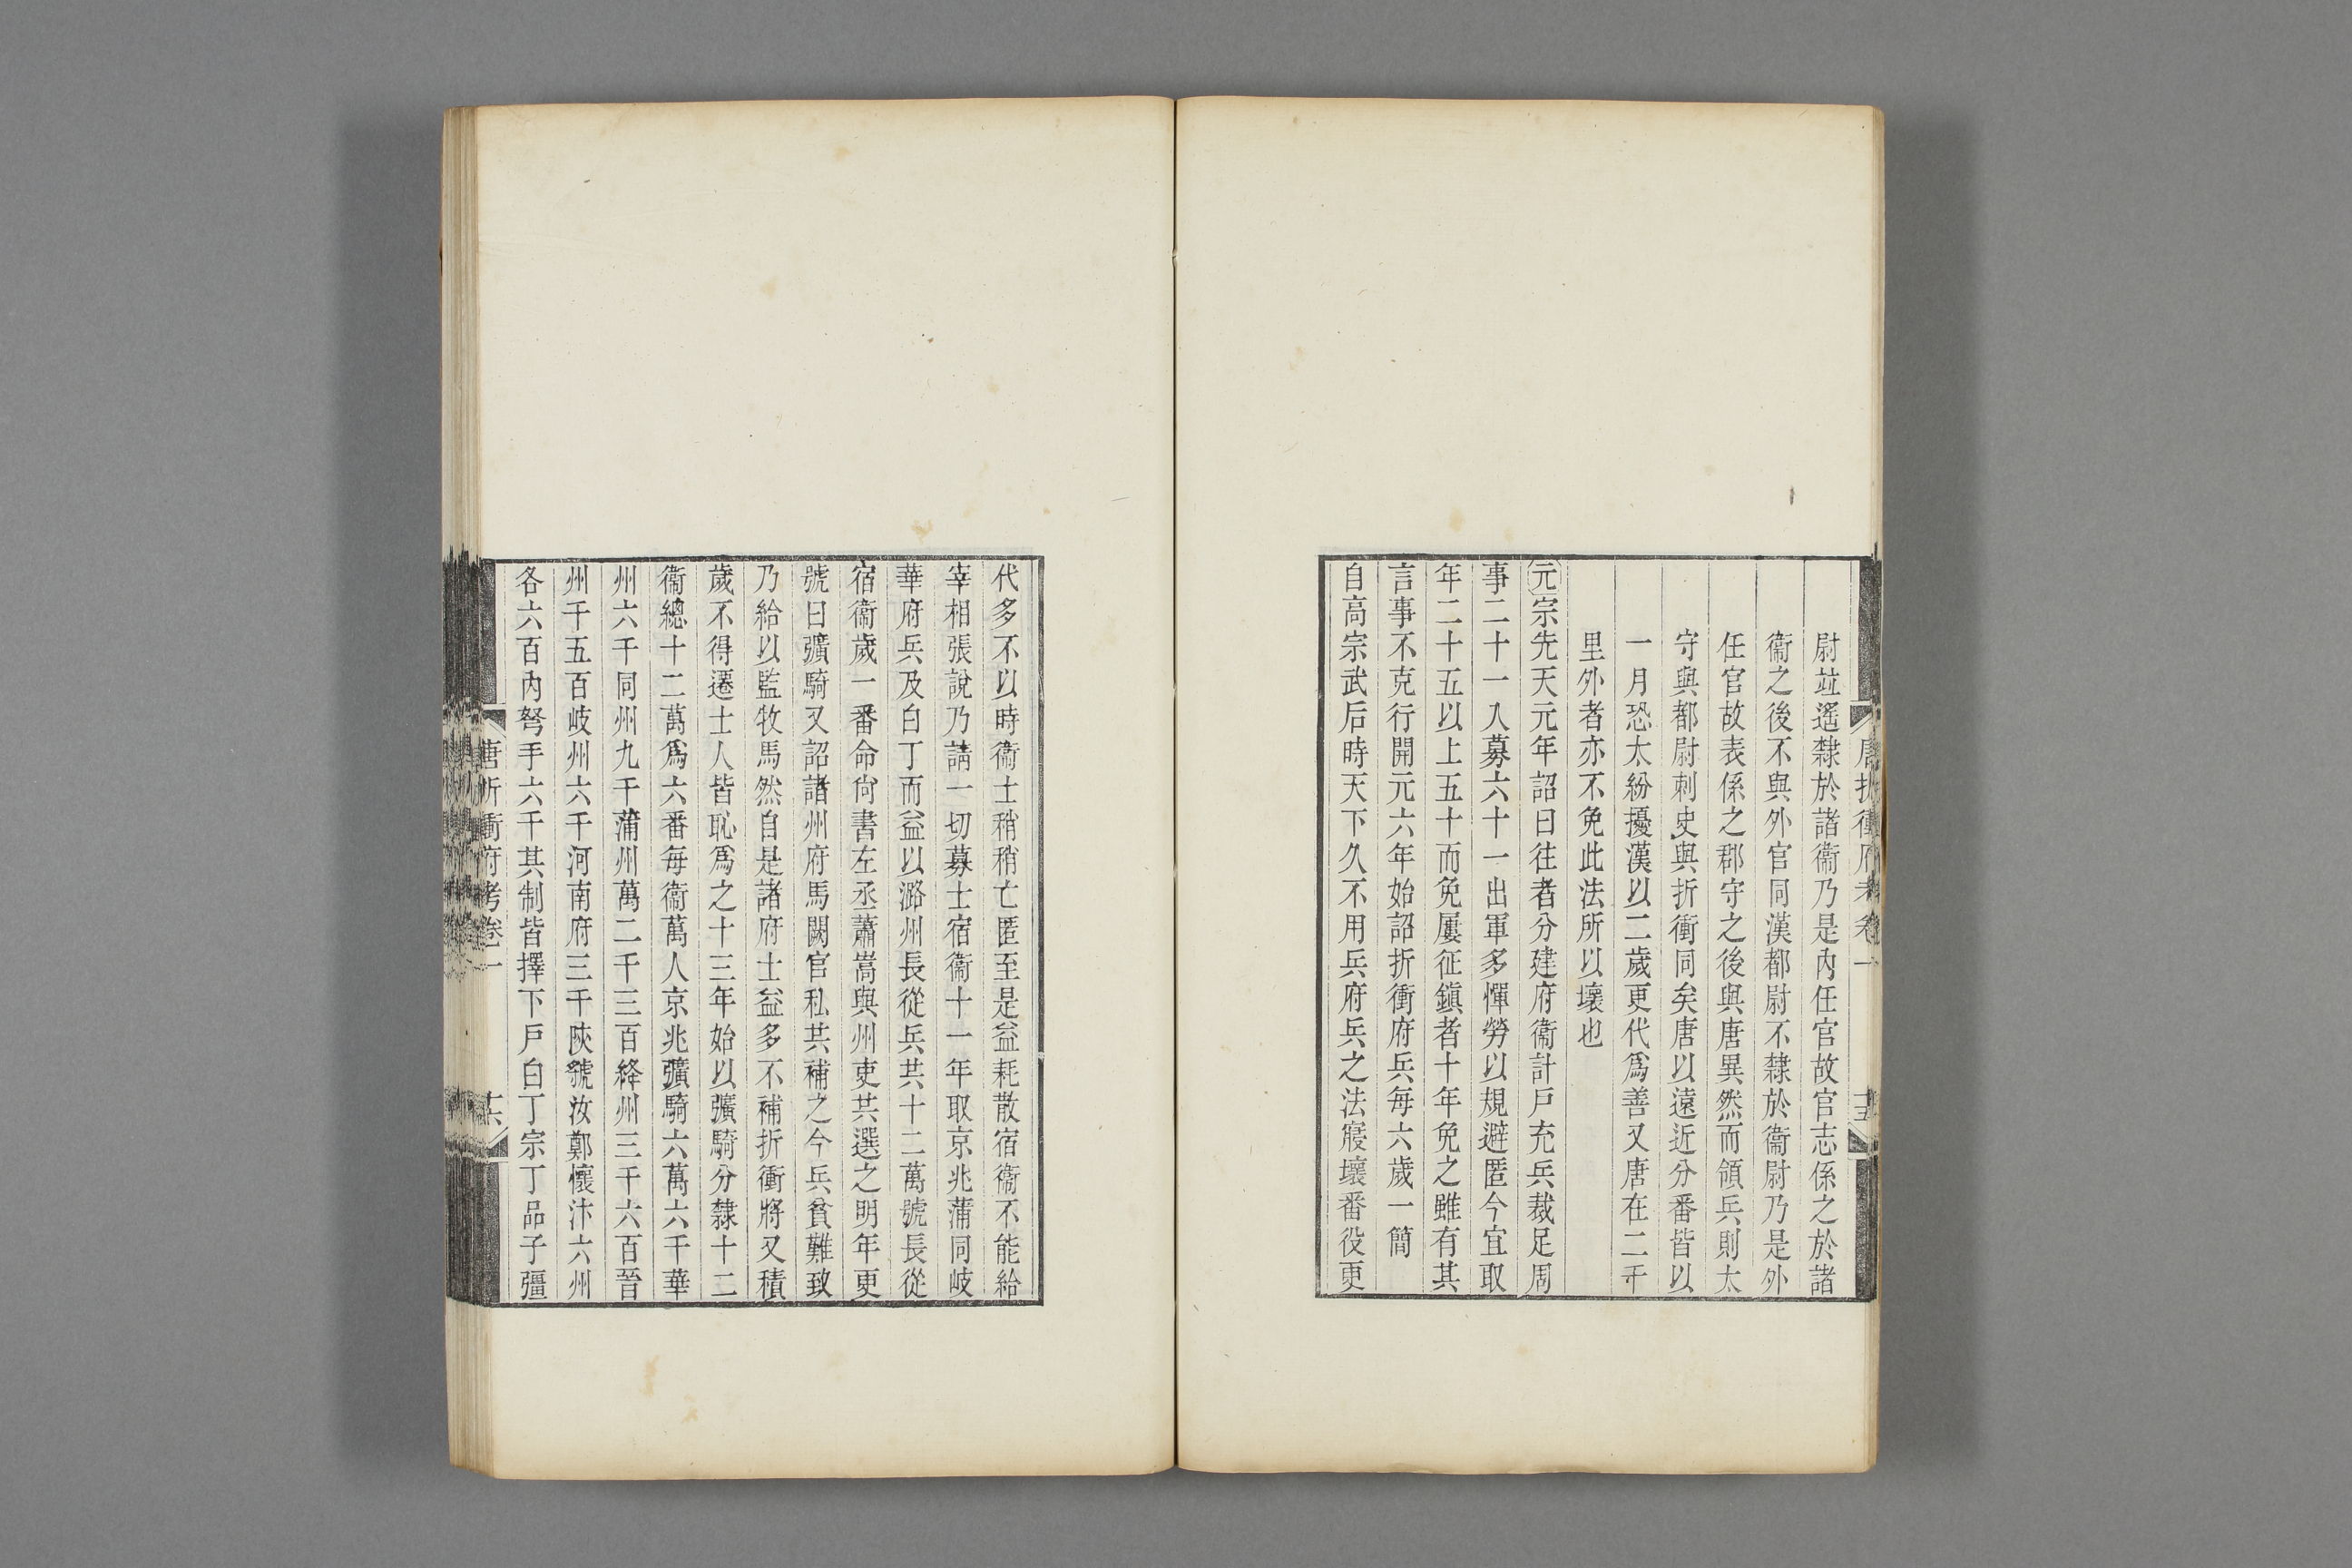 唐折衝府考卷一
十五
尉竝遙隸於諸衞乃是內任官故官志係之於諸
衞之後不與外官同漢都尉不隸於衞尉乃是外
任官故表係之郡守之後與唐異然而領兵則太
守與都尉刺史與折衝同矣唐以遠近分番皆以
一月恐太紛擾漢以二歲更代爲善又唐在二千
里外者亦不免此法所以壞也
元宗先天元年詔曰往者分建府衞計戶充兵裁足周
事二十一入募六十一出軍多憚勞以規避匿今宜取
年二十五以上五十而免屢征鎭者十年免之雖有其
言事不克行開元六年始詔折衝府兵每六歲一簡
自高宗武后時天下久不用兵府兵之法寖壞番役更
代多不以時衞士稍稍亡匿至是益耗散宿衞不能給
宰相張說乃請一切募士宿衞十一年取京兆蒲同岐
華府兵及白丁而益以潞州長從兵共十二萬號長從
宿衞歲一番命尙書左丞蕭嵩與州吏共選之明年更
號曰彍騎又詔諸州府馬闕官私共補之今兵貧難致
乃給以監牧馬然自是諸府士益多不補折衝將又積
歲不得遷士人皆恥爲之十三年始以彍騎分隸十二
衞總十二萬爲六番每衞萬人京兆彍騎六萬六千華
州六千同州九千蒲州萬二千三百絳州三千六百晉
州千五百岐州六千河南府三千陝虢汝鄭懷汴六州
各六百內弩手六千其制皆擇下戶白丁宗丁品子彊
唐折衝府考卷一
十六